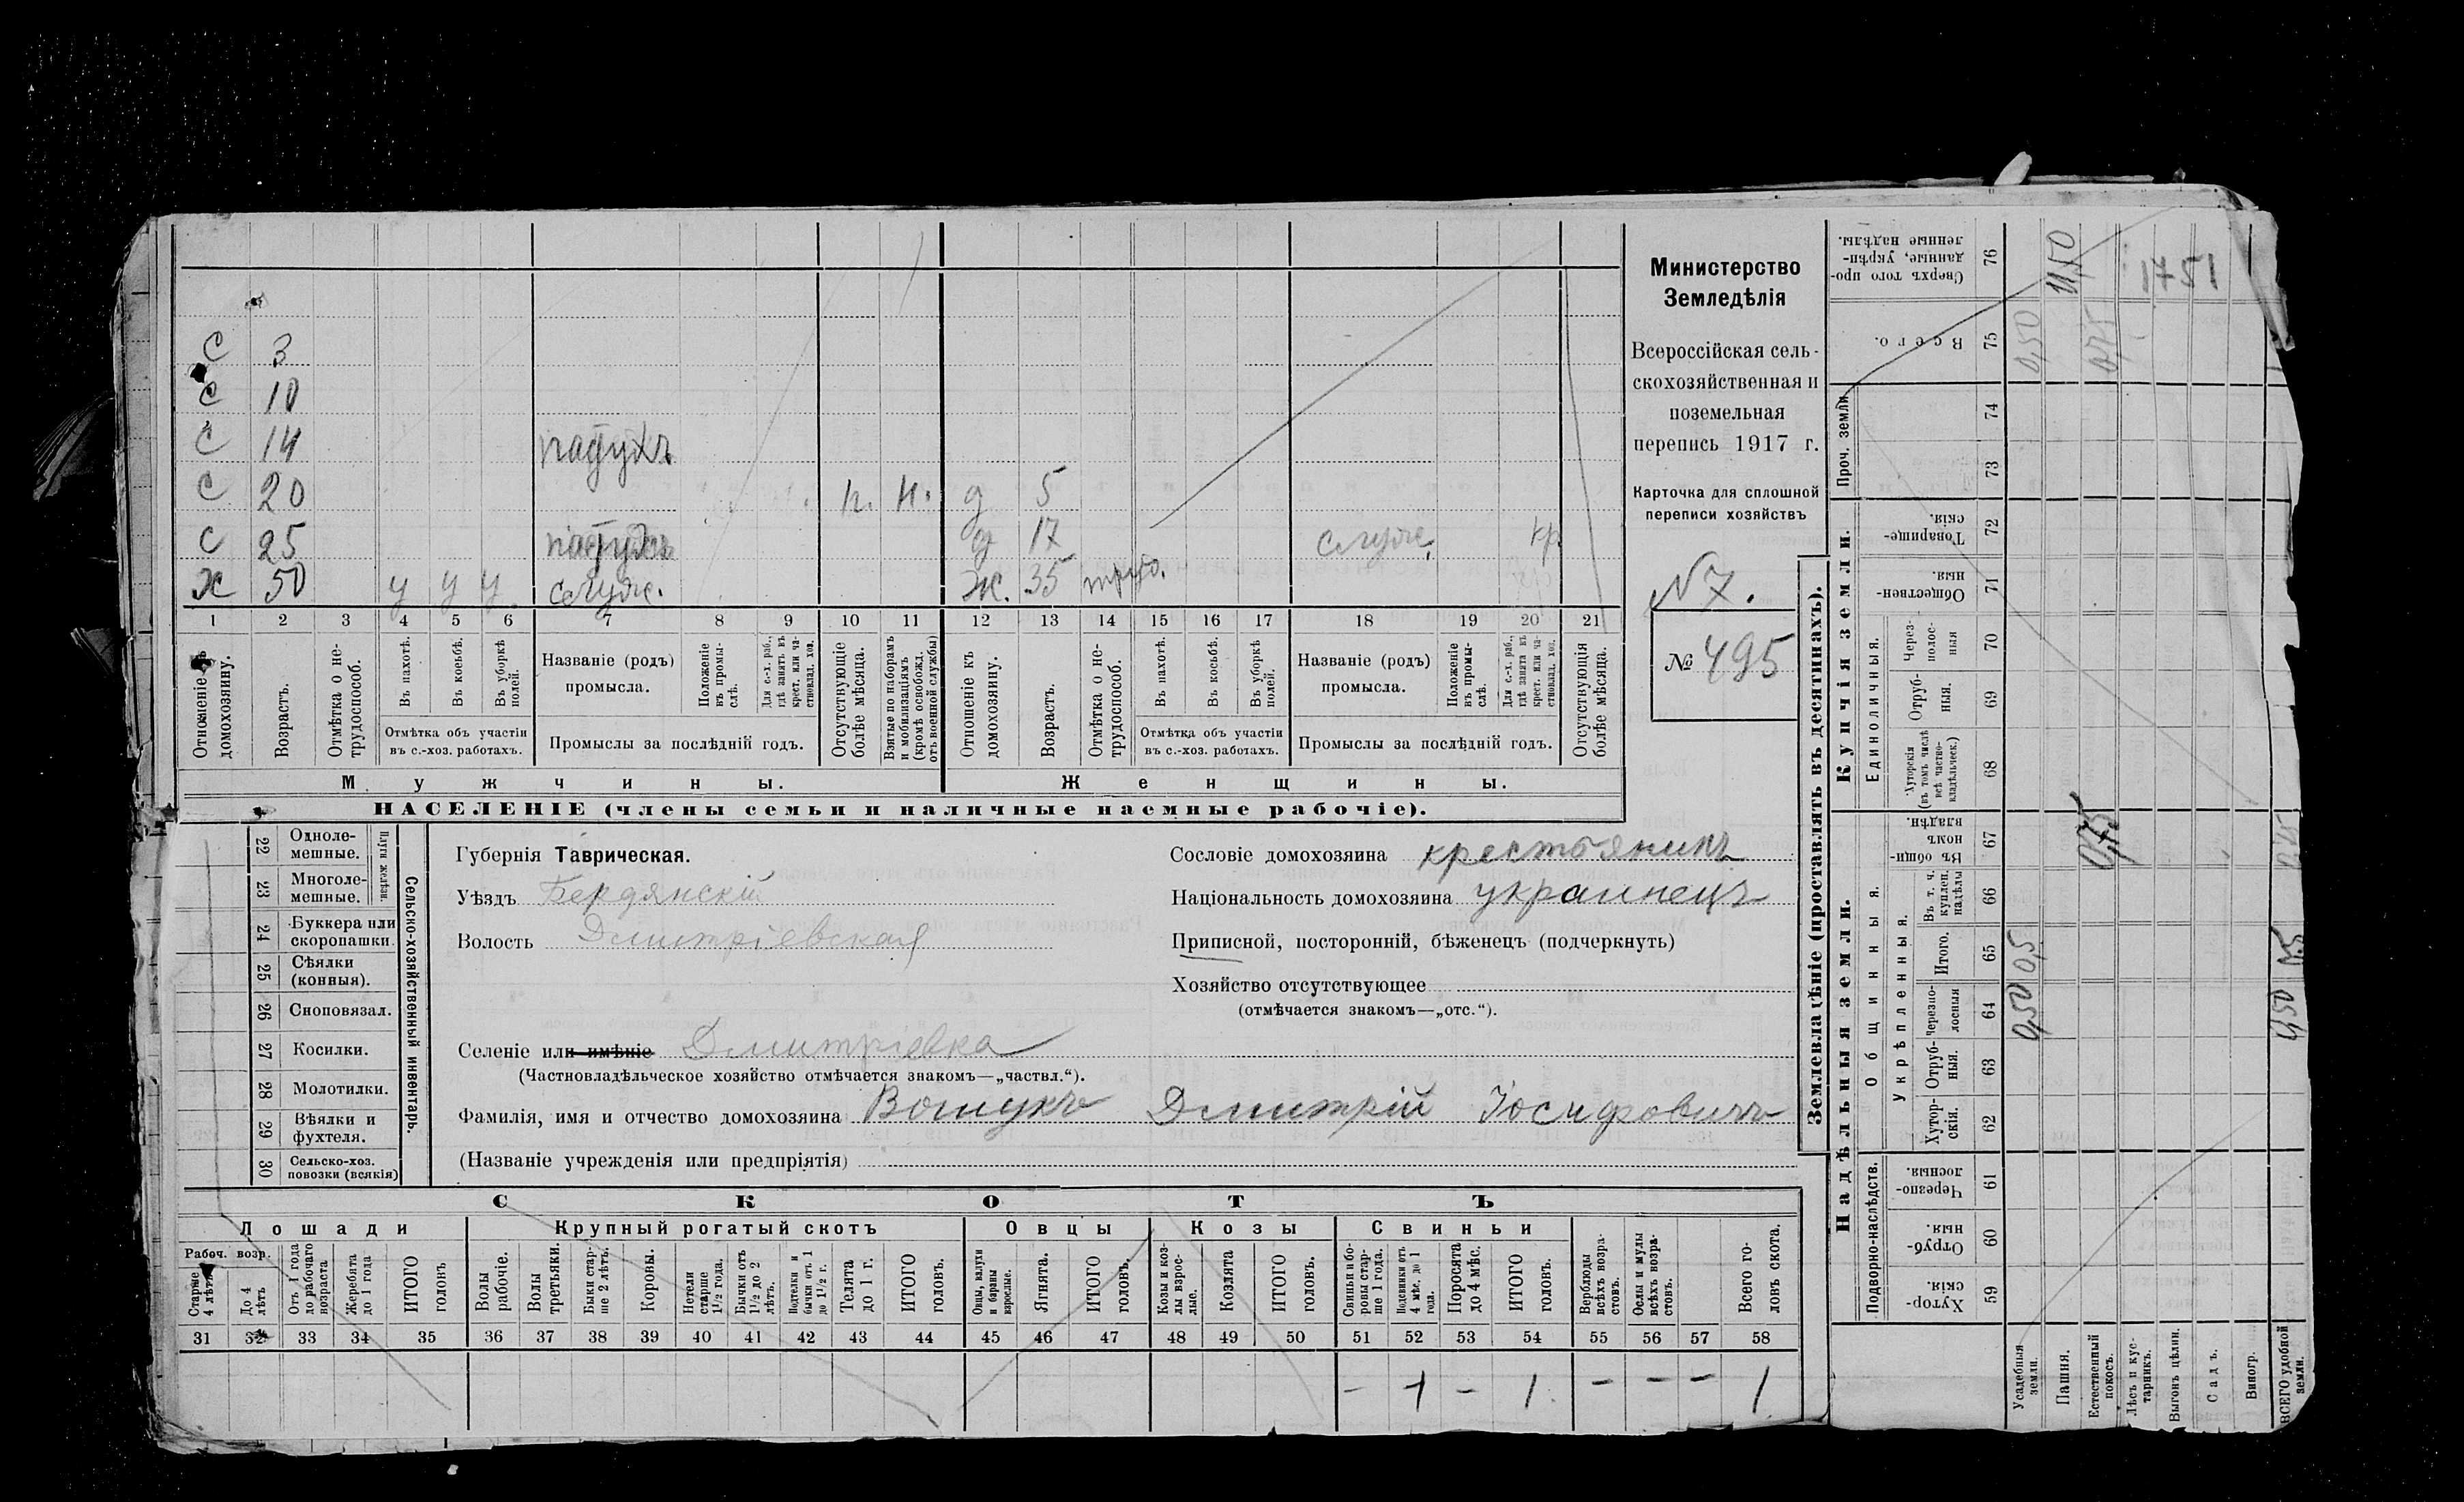 С 3
С 10
С 14 пастухъ
С 20 н. н. д 5
С 25 пастухъ д 17 служ. кр
Х 50 у у у служ. Ж. 35 трудо.
1 2 3 4 5 6 7 8 9 10 11 12 13 14 15 16 17 18 19 20 21
Отношеніе къ домохозяину.
Возрастъ.
Отмѣтка о нетрудоспособ.
Въ пахотѣ.
Въ косьбѣ.
Въ уборкѣ полей.
Отмѣтка объ участіи
въ с.-хоз. работахъ.
Названіе (родъ)
промысла.
Положеніе въ промыслѣ.
Для с.-х. раб., гдѣ занятъ въ крест. или частновлад. хоз.
Промыслы за послѣдній годъ.
Отсутствующіе болѣе мѣсяца.
Взятые по наборамъ и мобилизаціямъ (кромѣ освобожд. отъ военной службы)
Отношеніе къ домохозяину.
Возрастъ.
Отмѣтка о нетрудоспособ.
Въ пахотѣ.
Въ косьбѣ.
Въ уборкѣ полей.
Отмѣтка объ участіи
въ с.-хоз. работахъ.
Названіе (родъ)
промысла.
Положеніе въ промыслѣ.
Для с.-х. раб., гдѣ занята въ крест. или частновлад. хоз.
Промыслы за послѣдній годъ.
Отсутствующія болѣе мѣсяца.
Мужчины. Женщины.
НАСЕЛЕНІЕ (члены семьи и наличные наемные рабочіе).
Министерство
Земледѣлія
Всероссійская сель-
скохозяйственная и
поземельная
перепись 1917 г.
Карточка для сплошной
переписи хозяйствъ
N 7.
№ 495
22 Одноле-
мешные.
23 Многоле-
мешные.
Плуги желѣзн.
24 Буккера или
скоропашки.
25 Сѣялки
(конныя).
26 Сноповязал.
27 Косилки.
28 Молотилки.
29 Вѣялки и
фухтеля.
30 Сельско-хоз.
повозки (всякія)
Сельско-хозяйственный инвентарь.
Губернія Таврическая.
Уѣздъ Бердянскій
Волость Дмитріевская
Селеніе или имѣніе Дмитріевка
(Частновладѣльческое хозяйство отмѣчается знакомъ—„частвл.“).
Фамилія, имя и отчество домохозяина Вошукъ Дмитрій Іосифовичъ
(Названіе учрежденія или предпріятія)
Сословіе домохозяина крестьянинъ
Національность домохозяина украинецъ
Приписной, посторонній, бѣженецъ (подчеркнуть)
Хозяйство отсутствующее
(отмѣчается знакомъ—„отс.“).
СКОТЪ
Лошади Крупный рогатый скотъ Овцы Козы Свиньи
Рабоч. возр.
Старше 4 лѣтъ
До 4 лѣтъ
Отъ 1 года до рабочаго возраста
Жеребята до 1 года
ИТОГО головъ
Волы рабочіе.
Волы третьяки.
Быки старше 2 лѣтъ.
Коровы.
Нетели старше 1½ года.
Бычки отъ 1½ до 2 лѣтъ.
Подтелки и бычки отъ 1 до 1½ г.
Телята до 1 г.
ИТОГО головъ.
Овцы, валухи и бараны взрослые.
Ягнята.
ИТОГО головъ.
Козы и козлы взрослые.
Козлята
ИТОГО головъ.
Свиньи и боровы старше 1 года.
Подсвинки отъ 4 мѣс. до 1 года.
Поросята до 4 мѣс.
ИТОГО головъ.
Верблюды всѣхъ возрастовъ.
Ослы и мулы всѣхъ возрастовъ.
Всего головъ скота.
31 32 33 34 35 36 37 38 39 40 41 42 43 44 45 46 47 48 49 50 51 52 53 54 55 56 57 58
- 1 - 1. - - - 1
Землевладѣніе (проставлять въ десятинахъ).
Сверхъ того проданные, укрѣпленные надѣлы. 76 1751
Всего. 75 0,50 0,75
Проч. земли 74
73
Купчія земли.
Товарищескія. 72
Общественныя. 71
Единоличныя.
Черезполосныя 70
Отрубныя. 69
Хуторскія (въ томъ числѣ всѣ частновладѣльческ.) 68
Надѣльныя земли.
Общинныя.
Въ общинномъ владѣн. 67 0,75 0,75
Укрѣпленныя.
Въ т. ч. куплен. надѣлы 66
Итого. 65 0,5 0,5
Черезполосныя 64 0,50 0,50
Отрубныя. 63
Хуторскія. 62
Подворно-наслѣдств.
Черезполосныя. 61
Отрубныя. 60
Хуторскія 59
Усадебныя земли.
Пашня.
Естественный покосъ.
Лѣсъ и кустарникъ.
Выгонъ цѣлин.
Садъ.
Виногр.
ВСЕГО удобной земли.